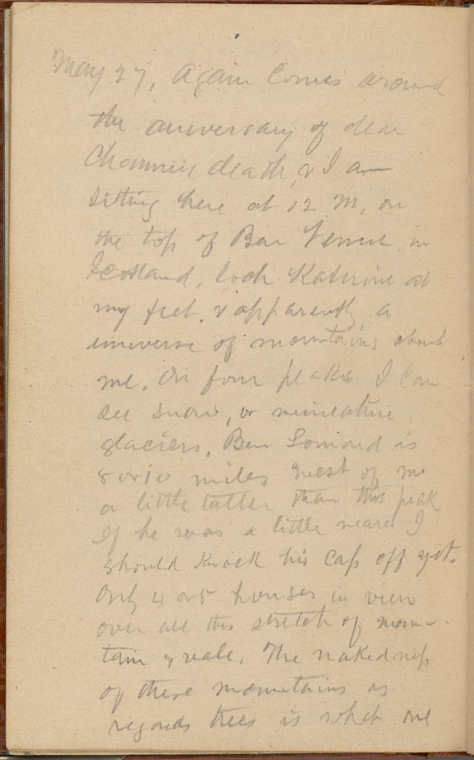 May 27, Again comes around
the aniversary of dear
Channie's death, & I am
sitting here at 12 M, on
the top of Ben Venue in
Scotland, loch Katrine at
my feet, & apparently a
universe of mountains about
me. On four peaks I can
see snow, or miniature
glaciers. Ben Lomond is
8 or 10 miles west of me
a little taller than this peak
If he was a little nearer I
should knock his cap off
Only 4 or 5 houses in view
over all this stretch of moun-
tain & vale. The nakedness
of these mountains as
regards trees is what one